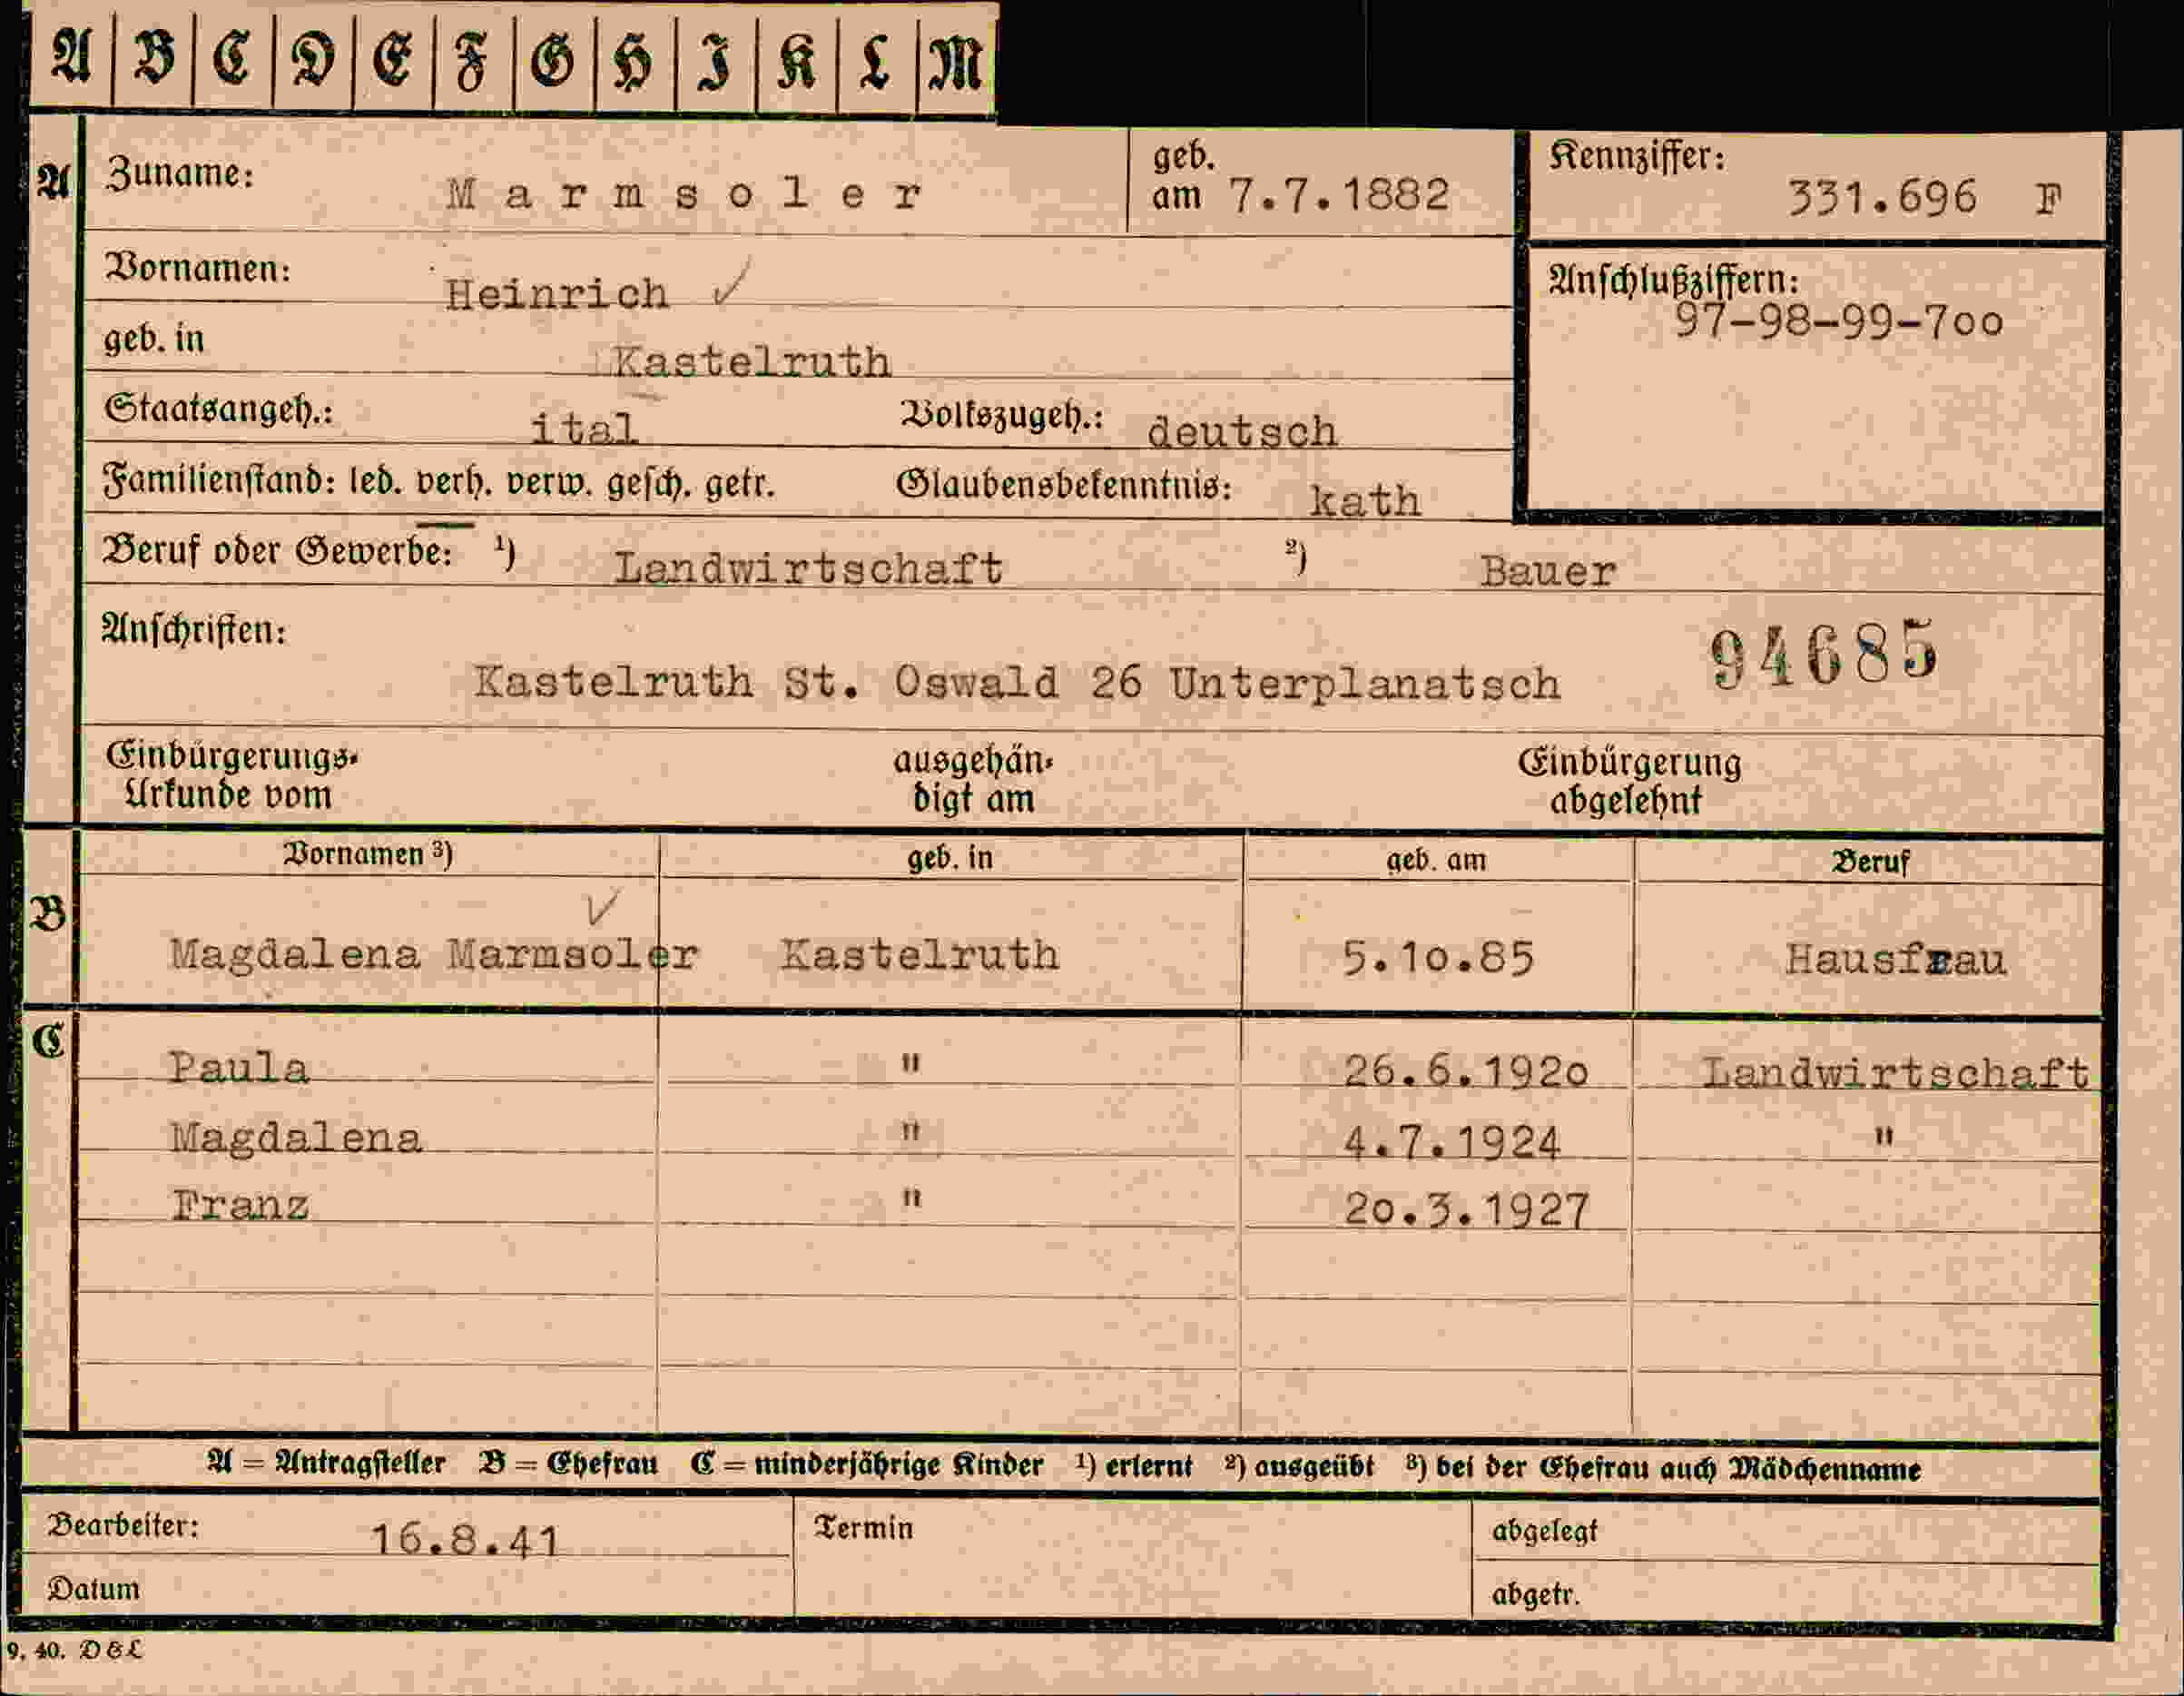 A B C D E F G H I K L M
A Zuname: Marmsoler geb. am 7.7.1882 Kennziffer: 331.696 F
Vornamen: Heinrich ✓ Anschlußziffern: 97-98-99-7oo
geb. in Kastelruth
Staatsangeh.: ital Volkszugeh.: deutsch
Familienstand: led. verh. verw. gesch. getr. Glaubensbekenntnis: kath
Beruf oder Gewerbe: 1) Landwirtschaft 2) Bauer
Anschriften: 94685
Kastelruth St. Oswald 26 Unterplanatsch
Einbürgerungs- ausgehän- Einbürgerung
Urkunde vom digt am abgelehnt
Vornamen 3) geb. in geb. am Beruf
B ✓
Magdalena Marmsoler Kastelruth 5.1o.85 Hausfrau
C Paula " 26.6.192o Landwirtschaft
Magdalena " 4.7.1924 "
Franz " 2o.3.1927
A = Antragsteller B = Ehefrau C = minderjährige Kinder 1) erlernt 2) ausgeübt 3) bei der Ehefrau auch Mädchenname
Bearbeiter: 16.8.41 Termin abgelegt
Datum abgetr.
9. 40. D & L